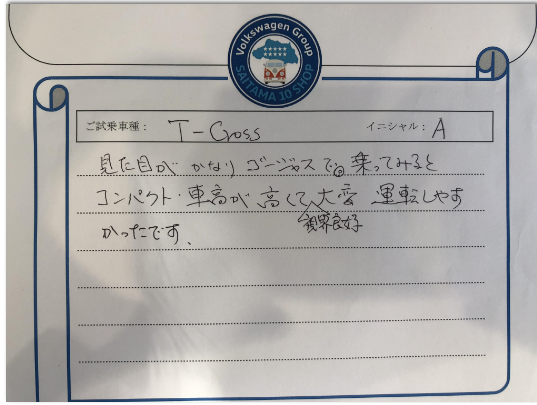 Volkswagen Group
SAITAMA 10 SHOP
ご試乗車種： T-Cross イニシャル： A
見た目が かなり ゴージャスで 乗ってみると
コンパクト・車高が 高くて 大変 運転しやす
視界良好
かったです、